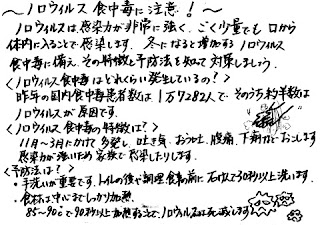 ～ノロウイルス食中毒に注意!～
ノロウイルスは感染力が非常に強く、ごく少量でも口から
体内に入ることで感染します。冬になると増加するノロウイルス
食中毒に備え、その特徴と予防法を知って対策しましょう。
<ノロウイルス食中毒はどれくらい発生しているの?>
昨年の国内食中毒患者数は1万7282人で、そのうち約半数は
ノロウイルスが原因です。
<ノロウイルス食中毒の特徴は?>
11月～3月にかけて多発し、吐き気、おう吐、腹痛、下痢などおこします
感染力が強いため家族で感染したりします。
<予防法は?>
・手洗いが重要です。トイレの後や調理、食事の前に石けんで30秒以上洗います。
・食材は中心までしっかり加熱。
85～90℃で90秒以上加熱することで、ノロウイルスは死滅します